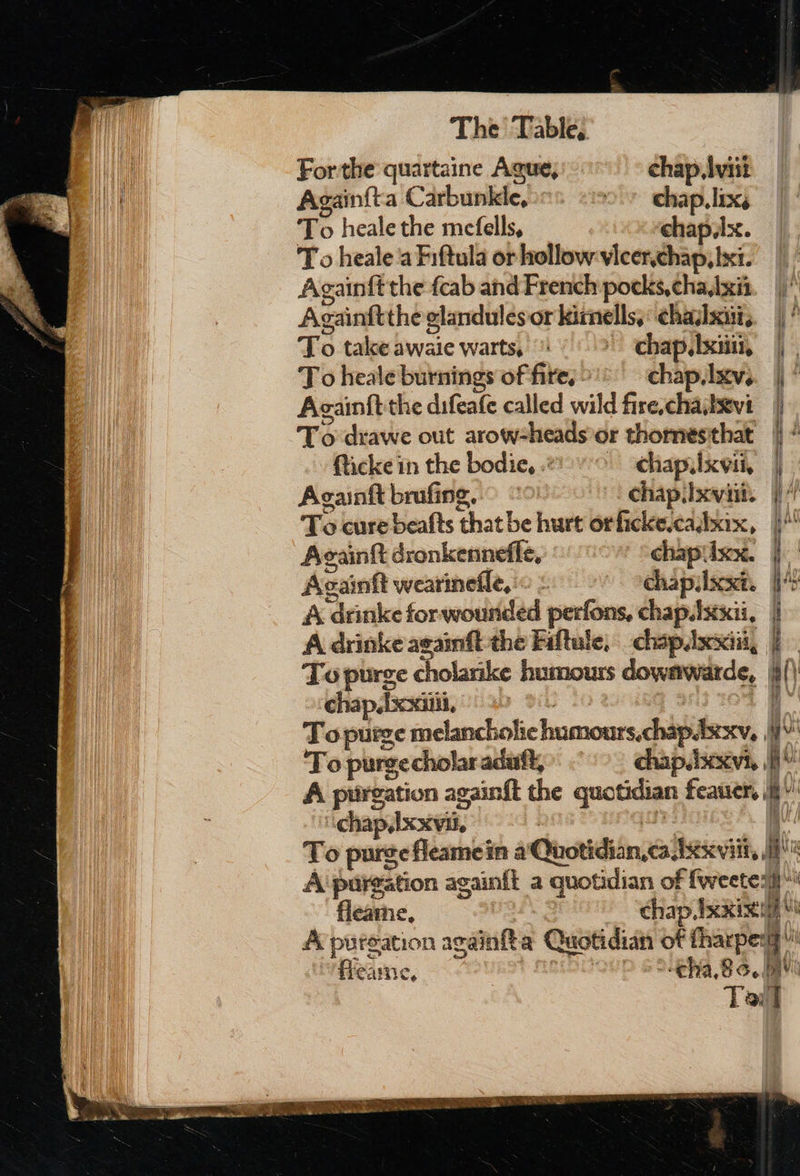 The Table,
For the quartaine Ague, chap.lviii
Againſt a Carbunkle, chap.lix,
To heale the meſells, chap.lx.
To heale a Fiſtula or hollow vlcer,chap,lxi.
Againſt the ſcab and French pocks,cha,lxii
Againſt the glandules or kirnells, cha,lxiii,
To take awaie warts, chap.lxiiii,
To heale burnings of fire, chap.lxv,
Againſt the diſeaſe called wild fire,cha,lxvi
To drawe out arow-heads or thornes that
ſticke in the bodie, chap.lxvii,
Againſt bruſing, chap.lxviii.
To cure beaſts that be hurt or ſicke.ca,lxix,
Againſt dronkenneſſe, chap.lxx.
Againſt wearineſſe, chap.lxxi.
A drinke for wounded perſons, chap.lxxii,
A drinke againſt the Fiſtule, chap.lxxiii,
To purge cholarike humours downwarde,
chap.lxxiiii,
To purge melancholic humours,chap.lxxv,
To purge cholar aduſt, chap.lxxvi,
A purgation againſt the quotidian feauer,
chap,lxxvii,
To purge fleame in a Quotidian,ca,lxxviii,
A purgation againſt a quotidian of ſweete
fleame, chap,lxxix
A purgation againſt a Quotidian of ſharpe
fleame, cha,80.
To